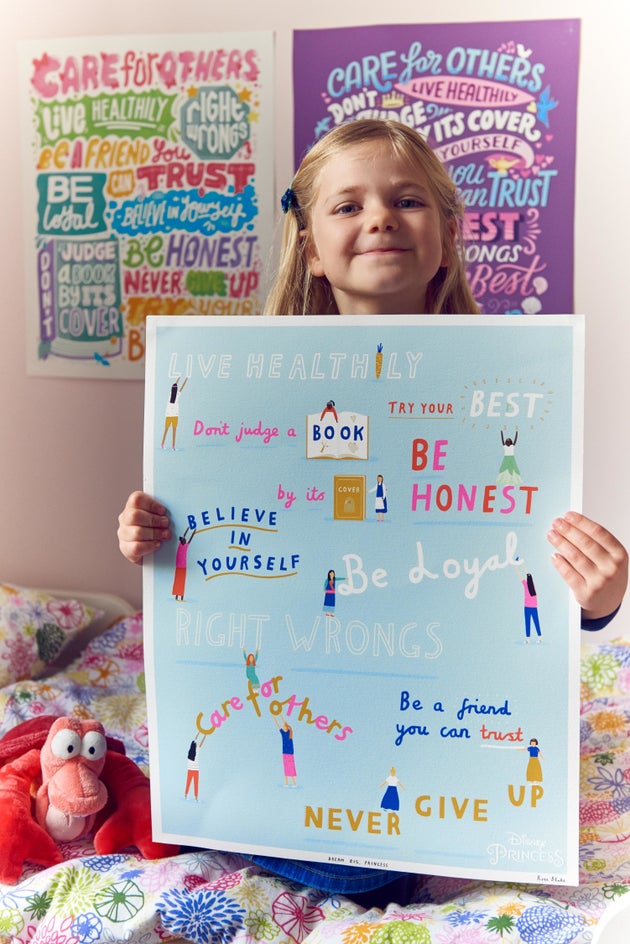 CARE for OTHERS
Live HEALTHILY
Right
wrongs
BE A FRIEND You
CAN TRUST
BE
Loyal
BELIEVE in Yourself
DON'T
JUDGE
a BOOK
BY ITS
COVER
Be HONEST
NEVER GIVE UP
TRY YOUR
B
CARE for OTHERS
LIVE HEALTHILY
DON'T
JUDGE
BY ITS COVER
YOURSELF
you
can TRUST
EST
WRONGS
Best
LIVE HEALTHILY
TRY YOUR BEST
Don't judge a BOOK
by its COVER
BE
HONEST
BELIEVE
IN
YOURSELF
Be Loyal
RIGHT WRONGS
Care for others
Be a friend
you can trust
NEVER GIVE UP
Disney
PRINCESS
DREAM BIG, PRINCESS
Rose Blake